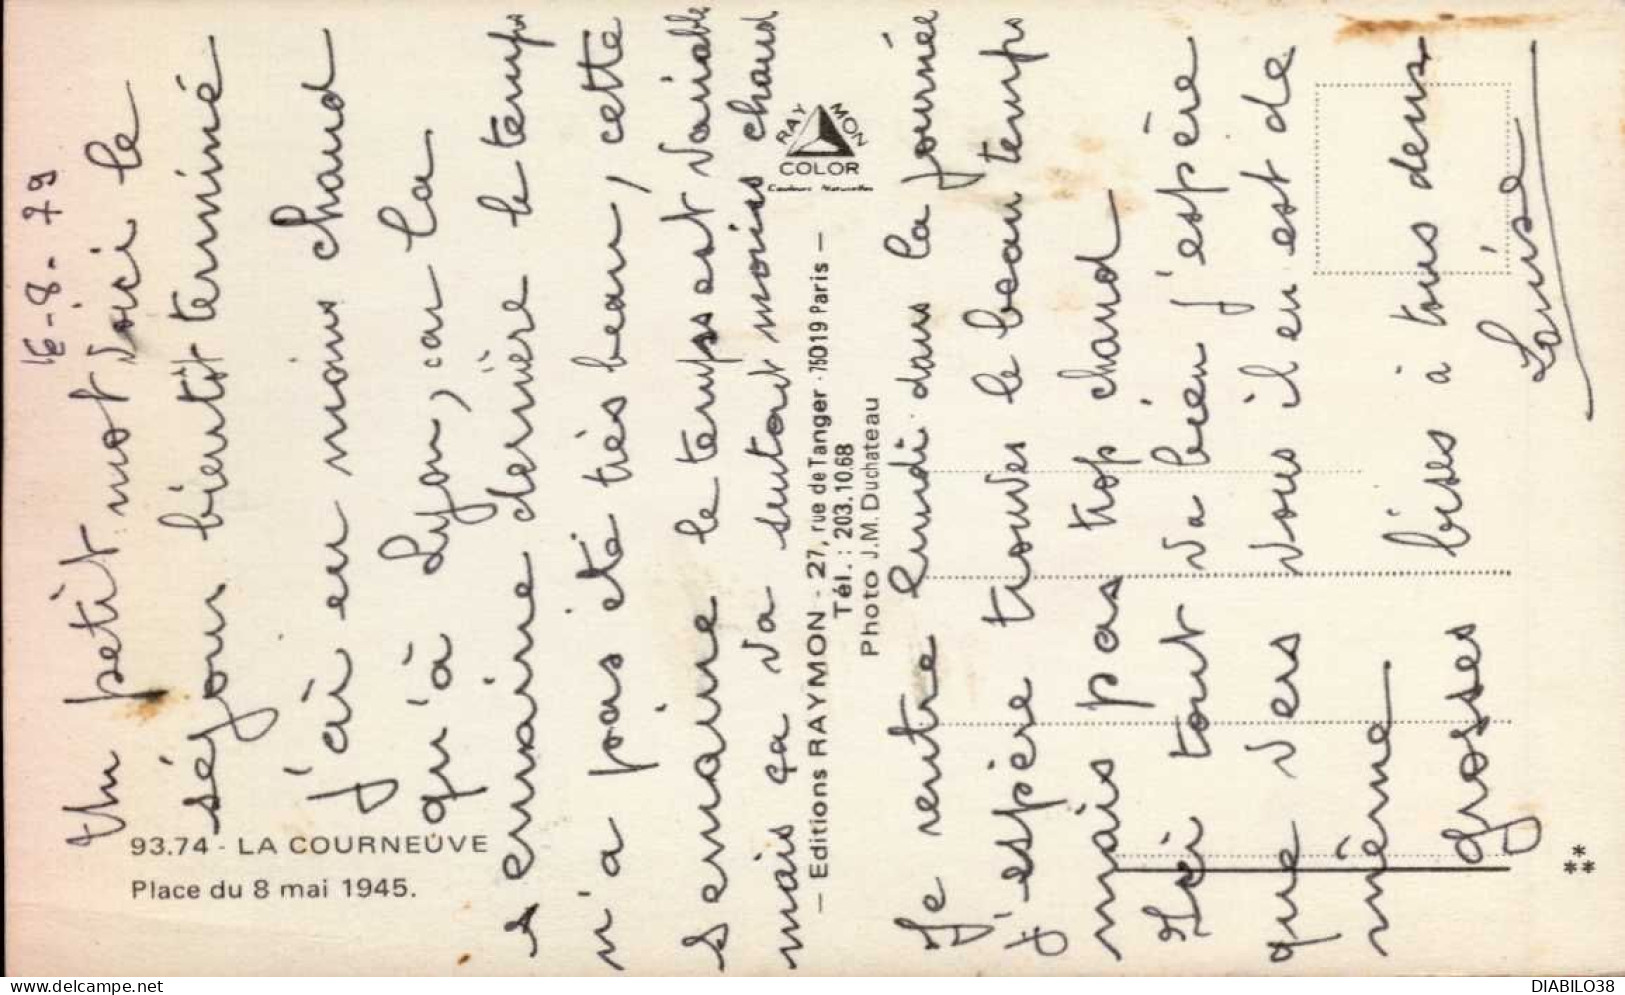 16-8-79
Un petit mot, voici le
séjour bientôt terminé
j'ai eu moins chaud
qu'à Lyon, car la
semaine dernière le temps
n'a pas été très beau, cette
semaine le temps est variable
mais ça va surtout moins chaud
Je rentre lundi dans la journée
j'espère trouver le beau temps
mais pas trop chaud
Ici tout va bien j'espère
que vers vous il en est de
même
grosses bises à tous deux
Louise
93.74 - LA COURNEUVE
Place du 8 mai 1945.
RAYMON
COLOR
Couleurs Naturelles
— Editions RAYMON - 27, rue de Tanger - 75019 Paris —
Tél. : 203.10.68
Photo J.M. Duchateau
delcampe.net
DIABILO38